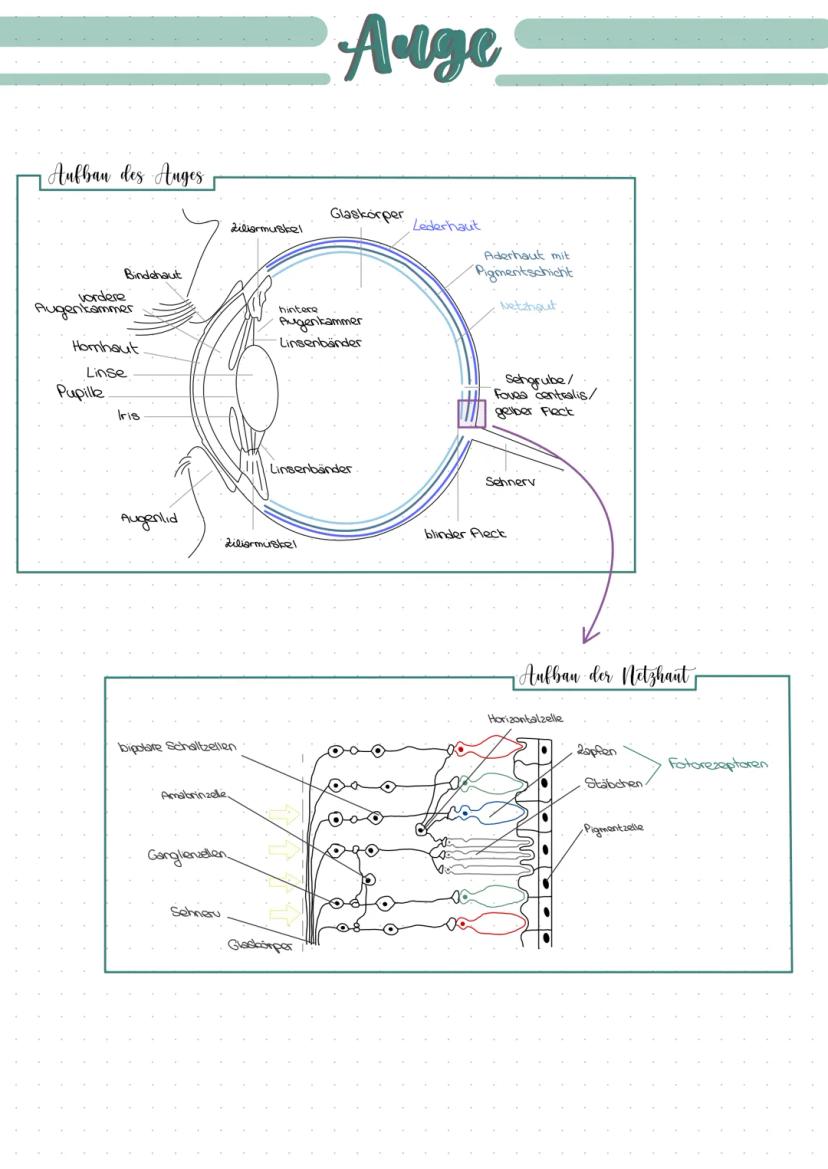 Auge
Aufbau des Auges
Glaskörper
Ziliarmuskel
Lederhaut
Aderhaut mit
Pigmentschicht
Bindehaut
vordere
Augenkammer
hintere
Augenkammer
Netzhaut
Linsenbänder
Hornhaut
Linse
Pupille
Iris
Sehgrube/
Fovea centralis/
gelber Fleck
Linsenbänder
Sehnerv
Augenlid
Ziliarmuskel
blinder Fleck
Aufbau der Netzhaut
Horizontalzelle
bipolare Schaltzellen
Zapfen
Fotorezeptoren
Stäbchen
Amakrinzelle
Pigmentzelle
Ganglienzellen
Sehnerv
Glaskörper